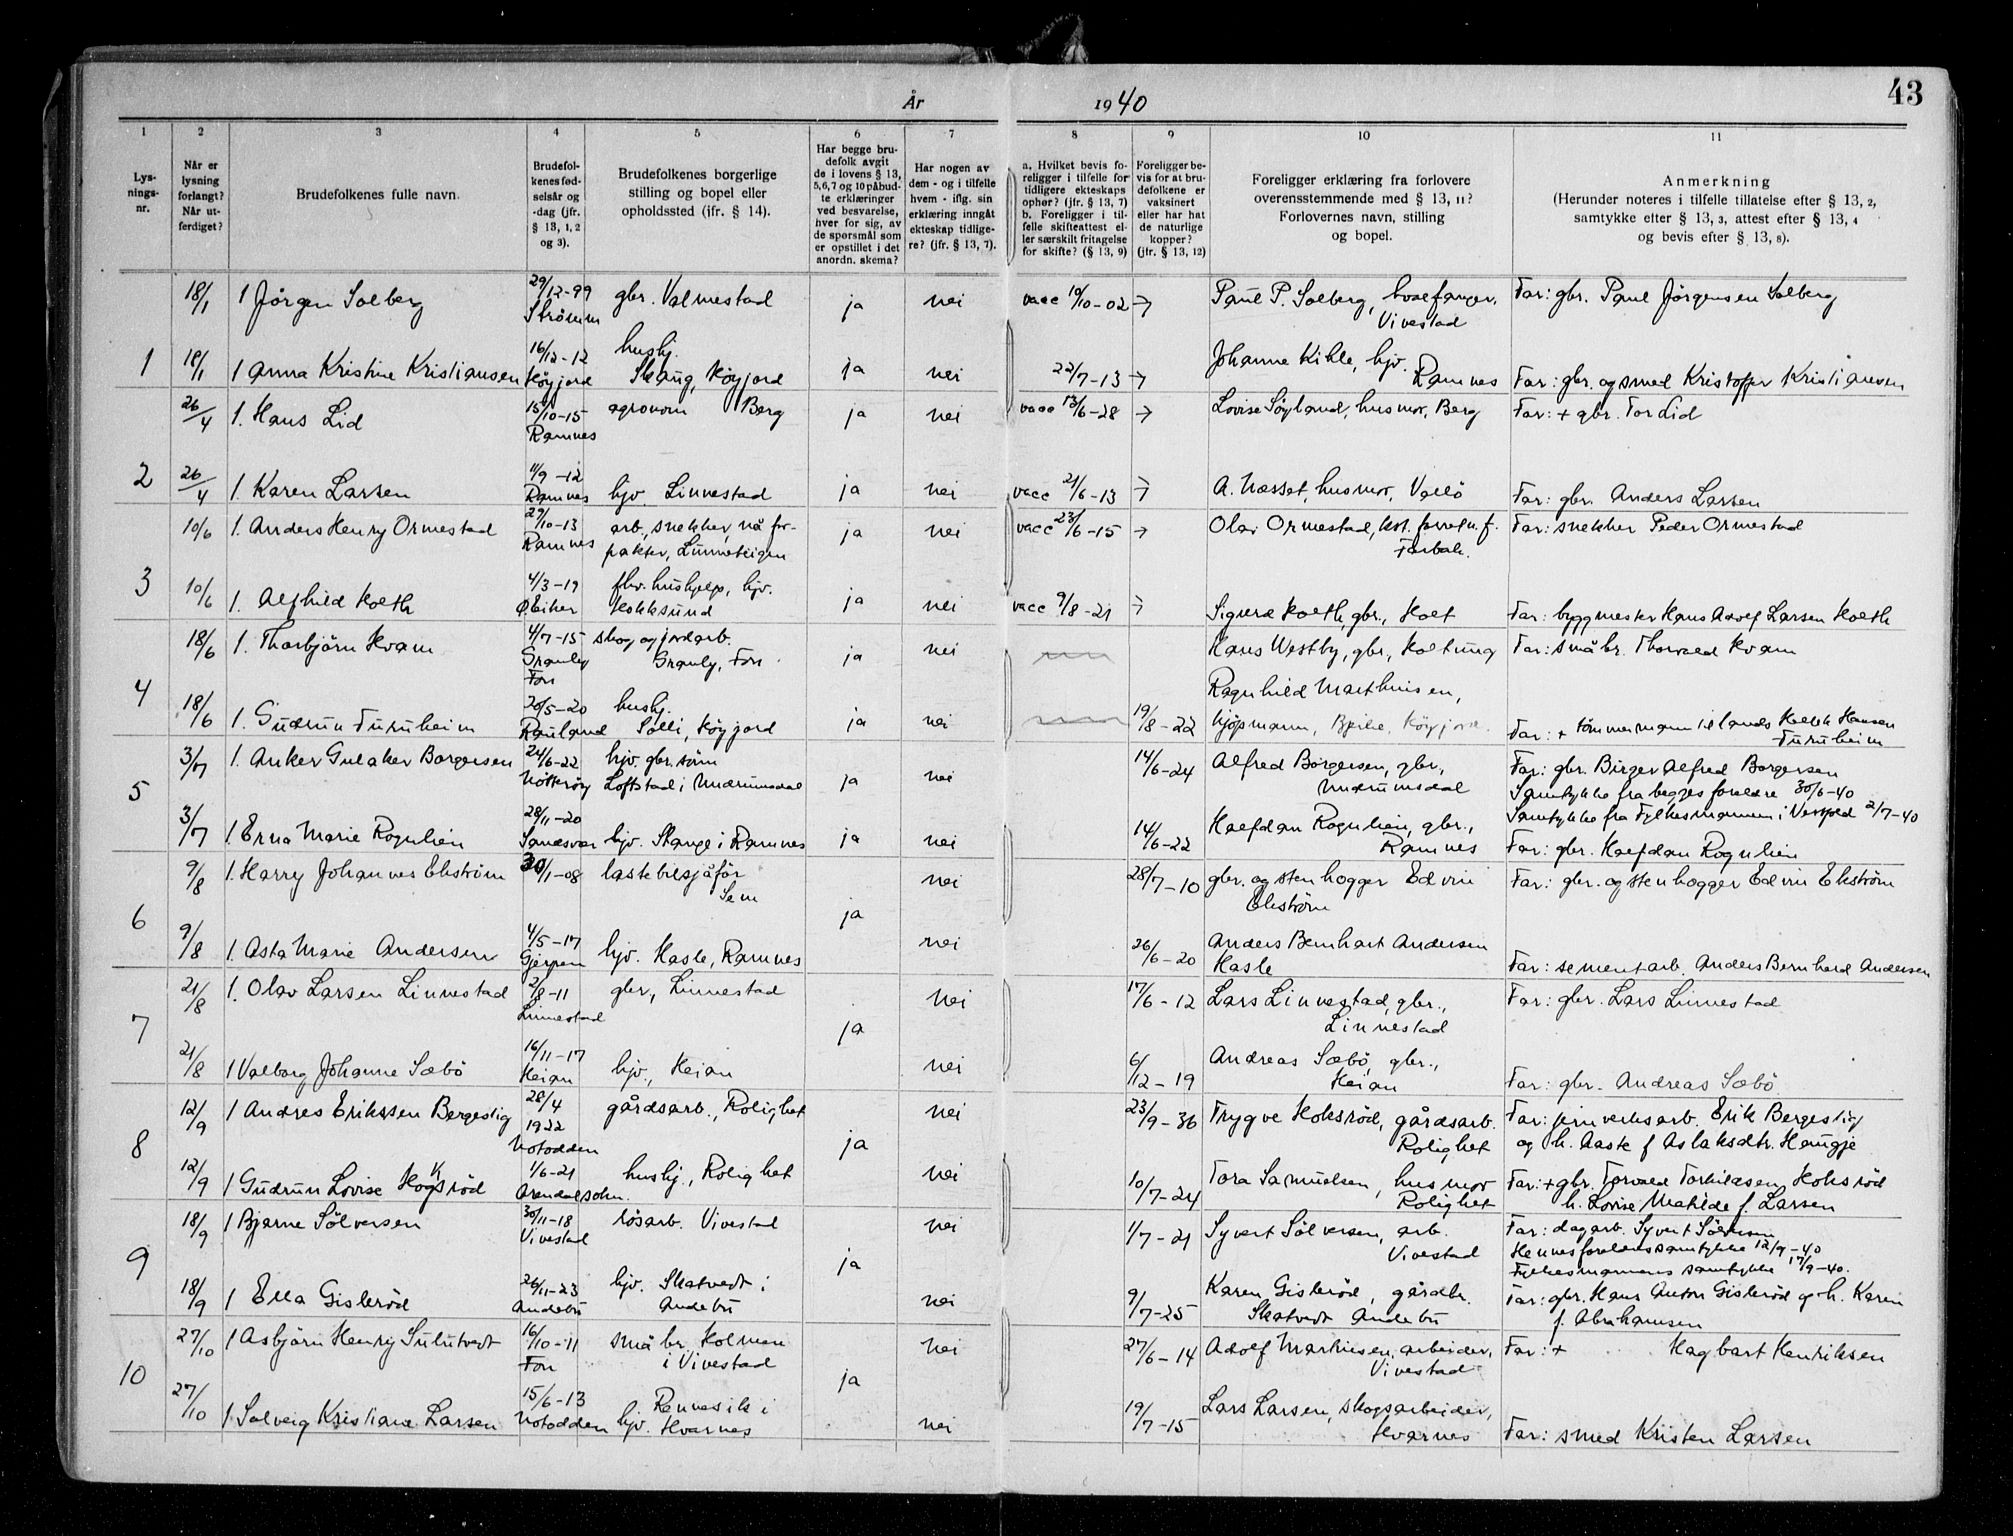 43
År 1940
1 2 3 4 5 6 7 8 9 10 11
Lys-
nings-
nr.
Når er
lysning
forlangt?
Når ut-
ferdiget?
Brudefolkenes fulle navn.
Brudefol-
kenes fød-
selsår og
-dag (jfr.
§ 13, 1, 2
og 3).
Brudefolkenes borgerlige
stilling og bopel eller
opholdssted (jfr. § 14).
Har begge bru-
defolk avgit
de i lovens § 13,
5,6,7 og 10 påbud-
te erklæringer
ved besvarelse,
hver for sig, av
de spørsmål som
er opstillet i det
anordn. skema?
Har nogen av
dem - og i tilfelle
hvem - iflg. sin
erklæring inngått
ekteskap tidlige-
re? (jfr. § 13, 7).
a. Hvilket bevis fo-
religger i tilfelle for
tidligere ekteskaps
ophør? (jfr. § 13, 7)
b. Foreligger i til-
felle skifteattest el-
ler særskilt fritagelse
for skifte? (§ 13, 9)
Foreligger be-
vis for at bru-
defolkene er
vaksinert
eller har hat
de naturlige
kopper?
(jfr. § 13, 12)
Foreligger erklæring fra forlovere
overensstemmende med § 13, 11?
Forlovernes navn, stilling
og bopel.
Anmerkning
(Herunder noteres i tilfelle tillatelse efter § 13, 2,
samtykke efter § 13, 3, attest efter § 13, 4
og bevis efter § 13, 8).
18/1 1 Jörgen Solberg 29/12-99 gbr. Valmestad ja nei vacc 10/10-02 → Paul P. Solberg, hvalfanger, Far: gbr. Paul Jörgensen Solberg
Strömm Vivestad
1 18/1 1 Anna Kristine Kristiansen 16/12-12 hushj. ja nei 22/7-13 → Johanne Kihle, hjv. Far: gbr. og smed Kristoffer Kristiansen
Höyjord Skaug, Höyjord Ramnes
26/4 1. Hans Lid 15/10-15 agronom Berg ja nei vacc 13/6-28 → Lovise Söyland, husmor, Berg Far: + gbr. Tor Lid
Ramnes
2 26/4 1. Karen Larsen 11/9-12 hjv. Linnestad ja nei vacc 21/6-13 → A. Næsset, husmor, Vallö Far: gbr. Anders Larsen
Ramnes
10/6 1. Anders Henry Ormestad 29/10-13 arb., snekker, nå for- ja nei vacc 23/6-15 → Olav Ormestad, Far: snekker Peder Ormestad
Ramnes pakter,
3 10/6 1. Alfhild Holth 4/3-19 fhv. hushjelp, hjv. ja nei vacc 9/8-21 → Sigurd Holth, gbr., Holt Far: byggmester Hans Adolf Larsen Holth
Ö. Eiker Hokksund
18/6 1. Thorbjörn Kvam 4/7-15 skog og jordarb. ja nei Hans Westby, gbr., Holtung Far: småbr. Thorvald Kvam
Granly Granly, Fon
Fon
4 18/6 1. Gudrun Furuheim 20/5-20 hushj. ja nei 19/8-22 Ragnhild Marthinsen,
Rauland Solli, Höyjord kjöpmann, Höyjord Far: + tömmermann Hansen
Furuheim
3/7 1. Anker Gulaker Borgersen 24/6-22 hjv. gbr. sönn ja nei 14/6-24 Alfred Borgersen, gbr., Far: gbr. Birger Alfred Borgersen
Nötteröy Loftstad i Undrumsdal Undrumsdal Samtykke fra begges foreldre 30/6-40
5 Samtykke fra Fylkesmannen i Vestfold 2/7-40
3/7 1. Erna Marie Rognlien 28/11-20 ja nei 14/6-22 Halfdan Rognlien, gbr., Far: gbr. Halfdan Rognlien
Sandsvær hjv. Stange i Ramnes Ramnes
9/8 1. Harry Johannes Ekström 30/1-08 lastebilsjåför nei 28/7-10 gbr. og stenhogger Edvin Far: gbr. og stenhogger Edvin Ekström
Sem Ekström
6 ja
9/8 1. Asta Marie Andersen 4/5-17 hjv. Hasle, Ramnes nei 26/6-20 Anders Bernhart Andersen Far: sementarb. Anders Bernhard Andersen
Gjerpen Hasle
21/8 1. Olav Larsen Linnestad 2/8-11 gbr, Linnestad nei 17/6-12 Lars Linnestad, gbr., Far: gbr. Lars Linnestad
Linnestad Linnestad
7 ja
21/8 1 Valborg Johanne Sæbö 16/11-17 hjv., Heian nei 6/12-19 Andreas Sæbö, gbr., Far: gbr. Andreas Sæbö
Heian Heian
12/9 1 Andres Erikssen Bergestig 28/4 gårdsarb., Rolighet nei 23/9-36 Trygve Hoksröd, gårdsarb. Far: jernverksarb. Erik Bergestig
1922 Rolighet og h. Aaste f. Aslaksdtr. Haugje
Notodden
8 ja
12/9 1 Gudrun Lovise Hoksröd 1/6-21 hushj., Rolighet nei 10/7-24 Tora Samuelsen, husmor Far: + gbr. Torvald Torkildsen Hoksröd
Arendalsohn. Rolighet h. Lovise Matilde f. Larsen
18/9 1 Bjarne Sölversen 30/11-18 lösarb. Vivestad nei 1/7-21 Syvert Sölversen, arb. Far: dagarb. Syvert Sölversen
Vivestad Vivestad Hennes foreldres samtykke 12/9-40
9 ja Fylkesmannens samtykke 17/9-40.
18/9 1 Ella Gisleröd 26/11-23 hjv. Skatvedt i nei 9/7-25 Karen Gisleröd, gårdbr. Far: gbr. Hans Anton Gisleröd og h. Karen
Andebu Andebu Skatvedt Andebu f. Abrahamsen
27/10 1 Asbjörn Henry Sulutvedt 16/10-11 småbr. Holmen nei 27/6-14 Adolf Martinsen, arbeider, Far: + Hagbart Henriksen
Fon i Vivestad Vivestad
10 ja
27/10 1 Solveig Kristiane Larsen 15/6-13 Rennesik i nei 19/7-15 Lars Larsen, skogsarbeider, Far: smed Kristen Larsen
Notodden hjv. Hvarnes Hvarnes